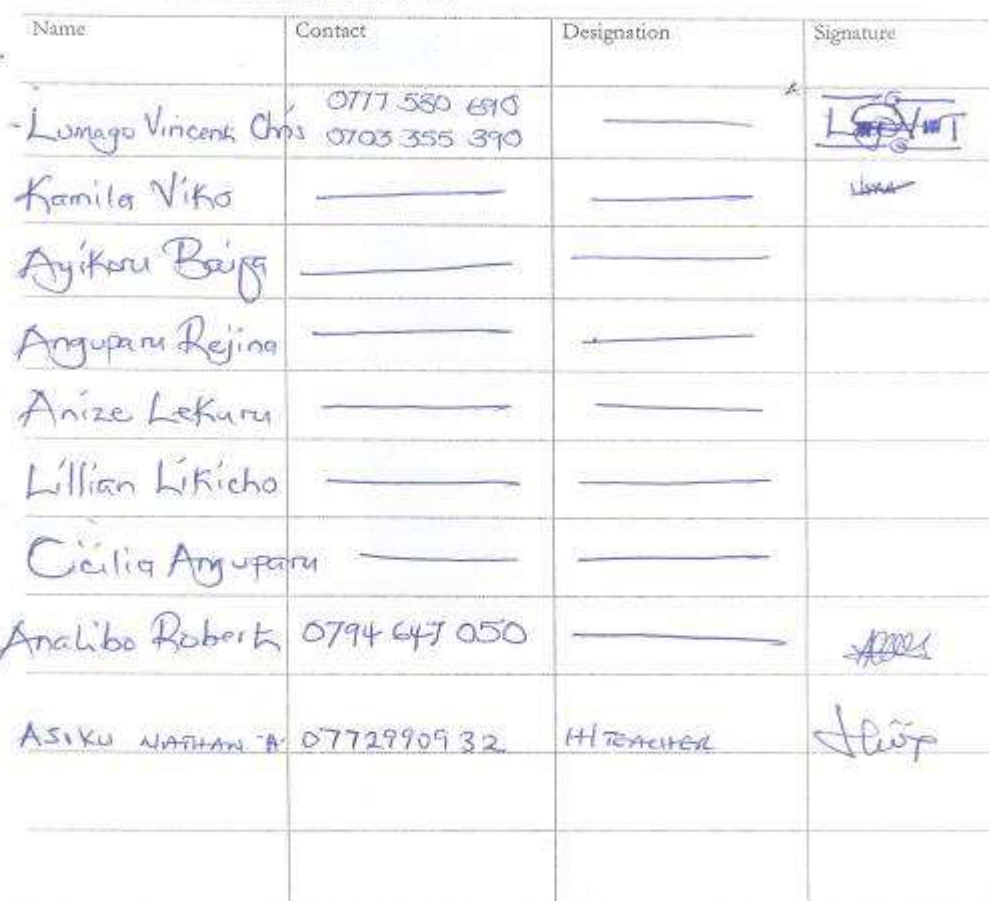 Name Contact Designation Signature
- Lumago Vincent Chris 0777 580 690
0703 355 390
Kamila Viko
Ayikoru
Anguparu Rejina
Anize Lekuru
Lillian Likicho
Cicilia Anguparu
Analibo Robert 0794 647 050
ASIKU NATHAN "A" 0772990932 H/TEACHER